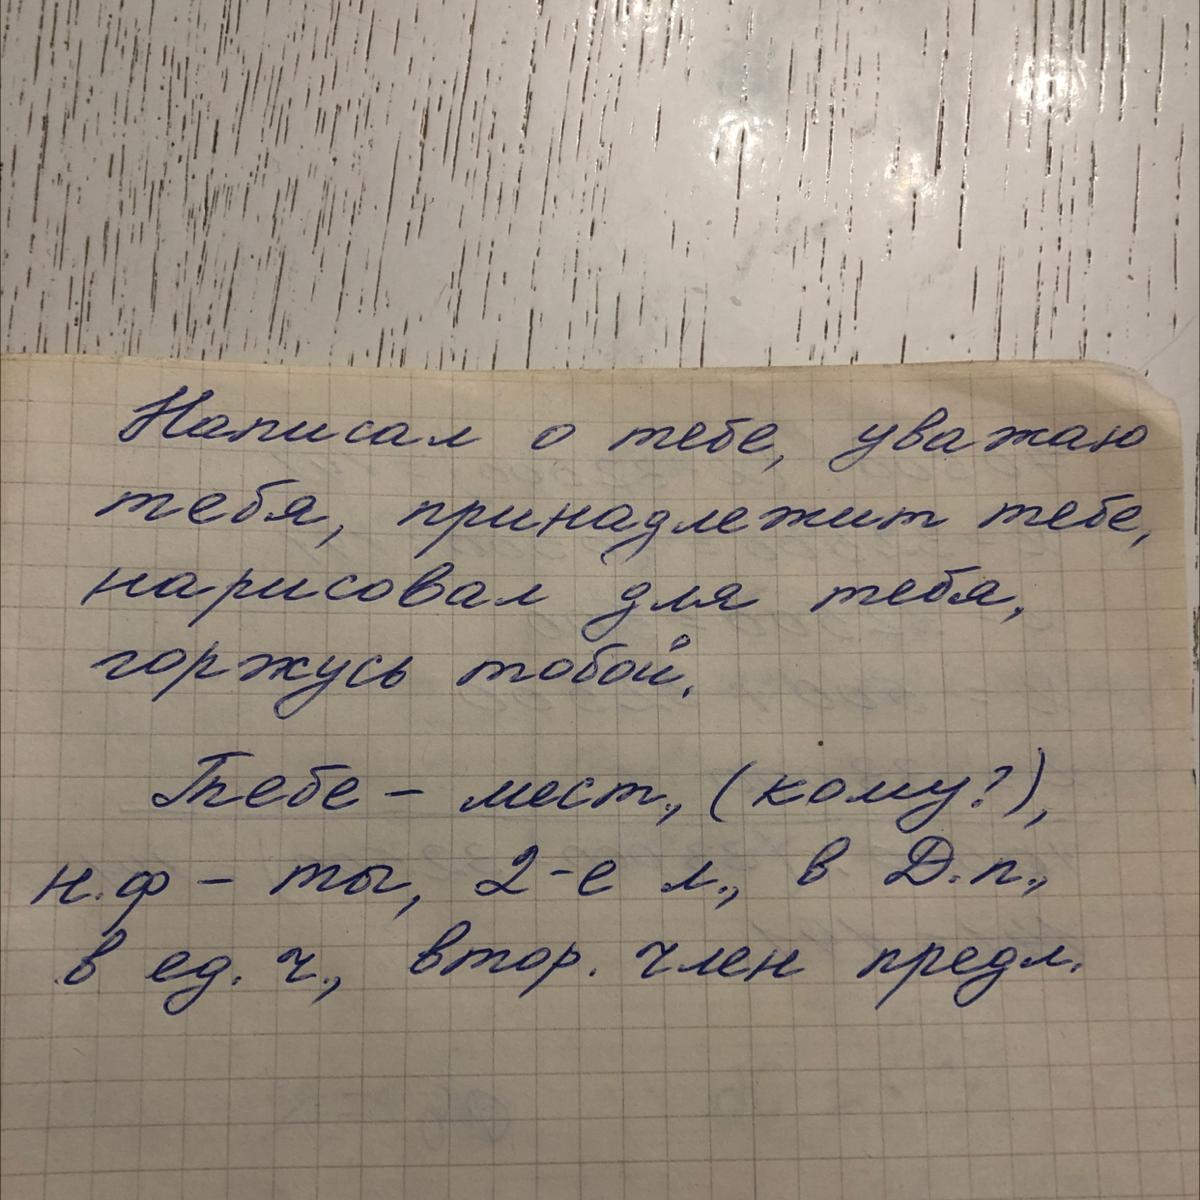 Написал о тебе, уважаю
тебя, принадлежит тебе,
нарисовал для тебя,
горжусь тобой.
Тебе – мест., (кому?),
н.ф – ты, 2-е л., в Д.п.,
в ед. ч., втор. член предл.